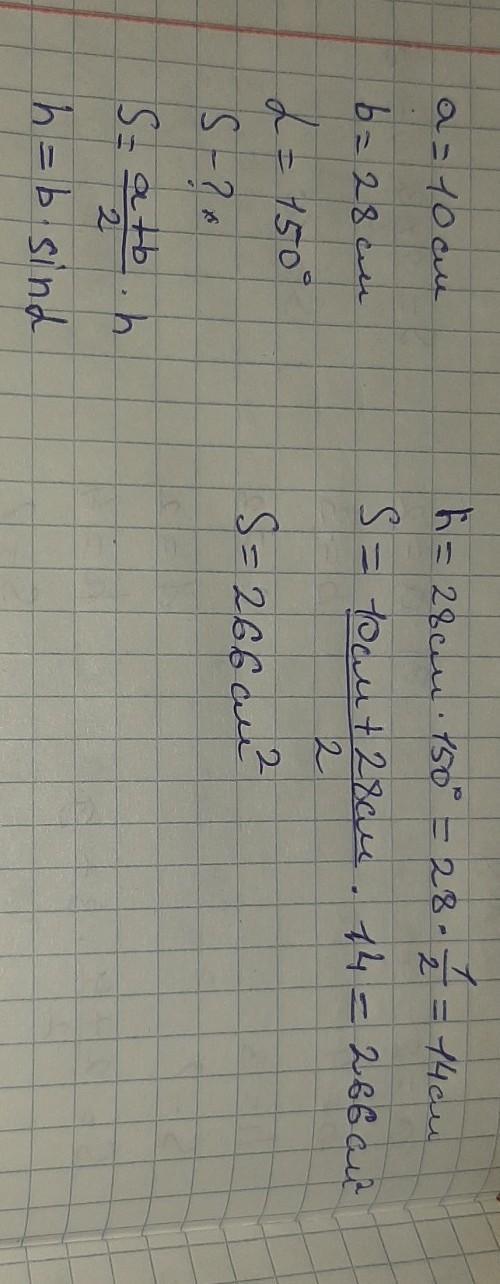 a = 10 см
b = 28 см
α = 150°
S - ?
S = a + b / 2 · h
h = b · sin α
h = 28 см · 150° = 28 · 1/2 = 14 см
S = 10 см + 28 см / 2 · 14 = 266 см²
S = 266 см²